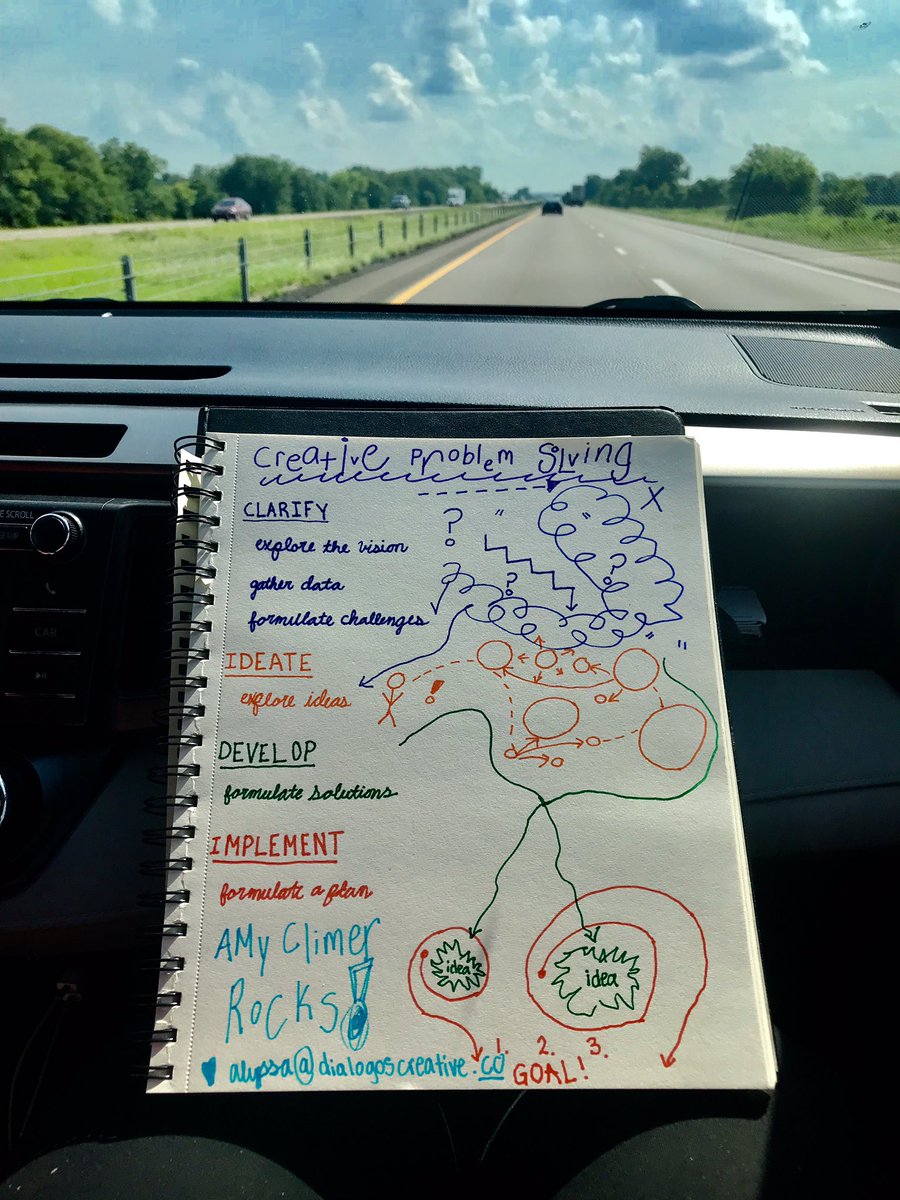 Creative Problem Solving
CLARIFY
explore the vision
gather data
formulate challenges
IDEATE
explore ideas
DEVELOP
formulate solutions
IMPLEMENT
formulate a plan
AMy Climer
Rocks!
♥ alyssa@dialogoscreative.co
idea
idea
1. 2. 3.
GOAL!
? " " X
? ?
" "
!
CAR